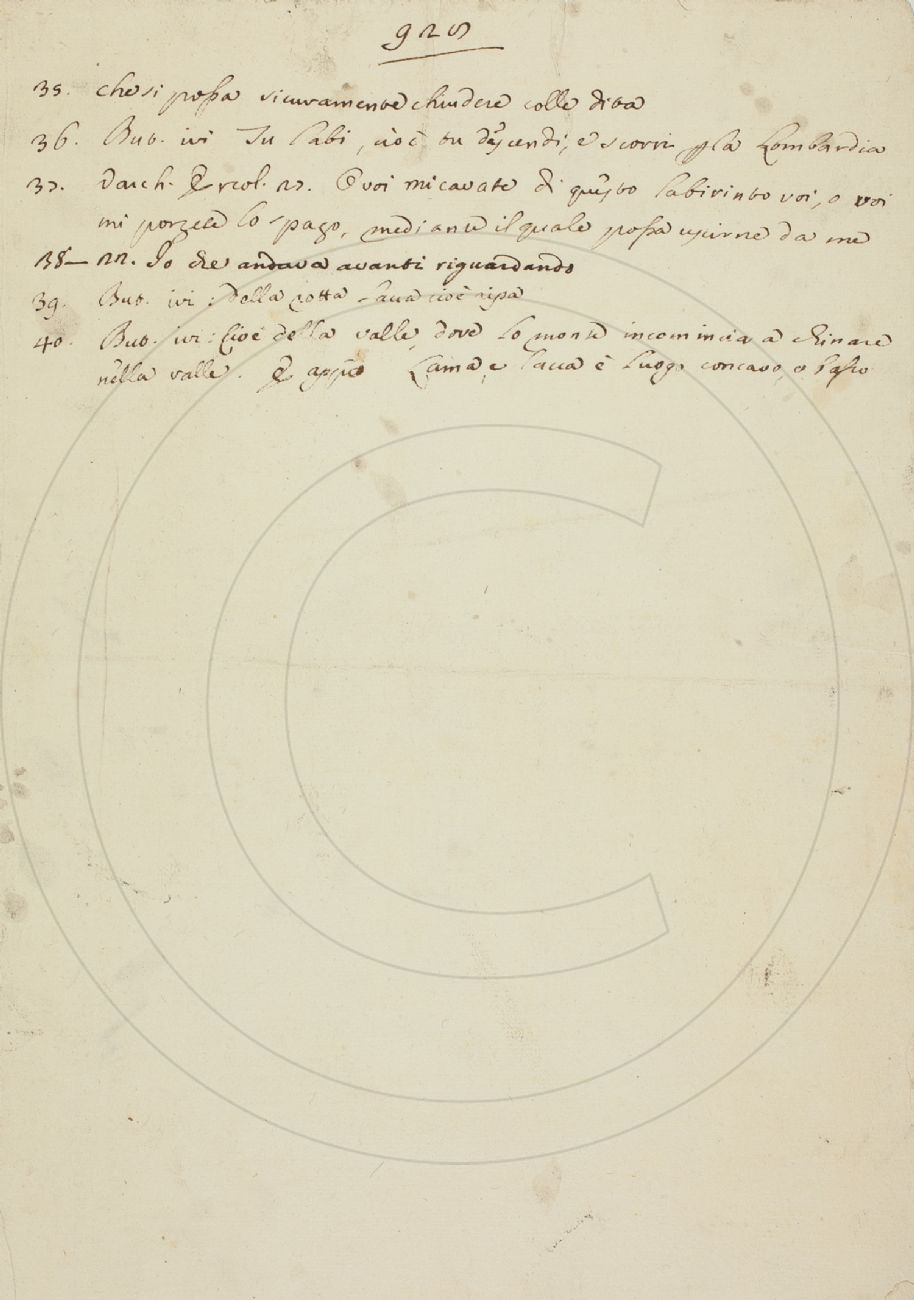 928
35. che si possa sicuramente chiudere colle dita
36. But. ivi Tu labi, cioè tu discendi, e scorri p la Lombardia
37. Varch. Ercol. 27. O voi mi cavate di questo labirinto voi, o voi
mi porgete lo spago, mediante il quale possa uscirne da me
38— 22. Io che andava avanti riguardando
39. But. ivi: Della rotta lacca cioè ripa
40. But. ivi: Cioè della valle, dove lo monte incomincia a chinare
nella valle. E Lama, e lacca è luogo concavo, o basso